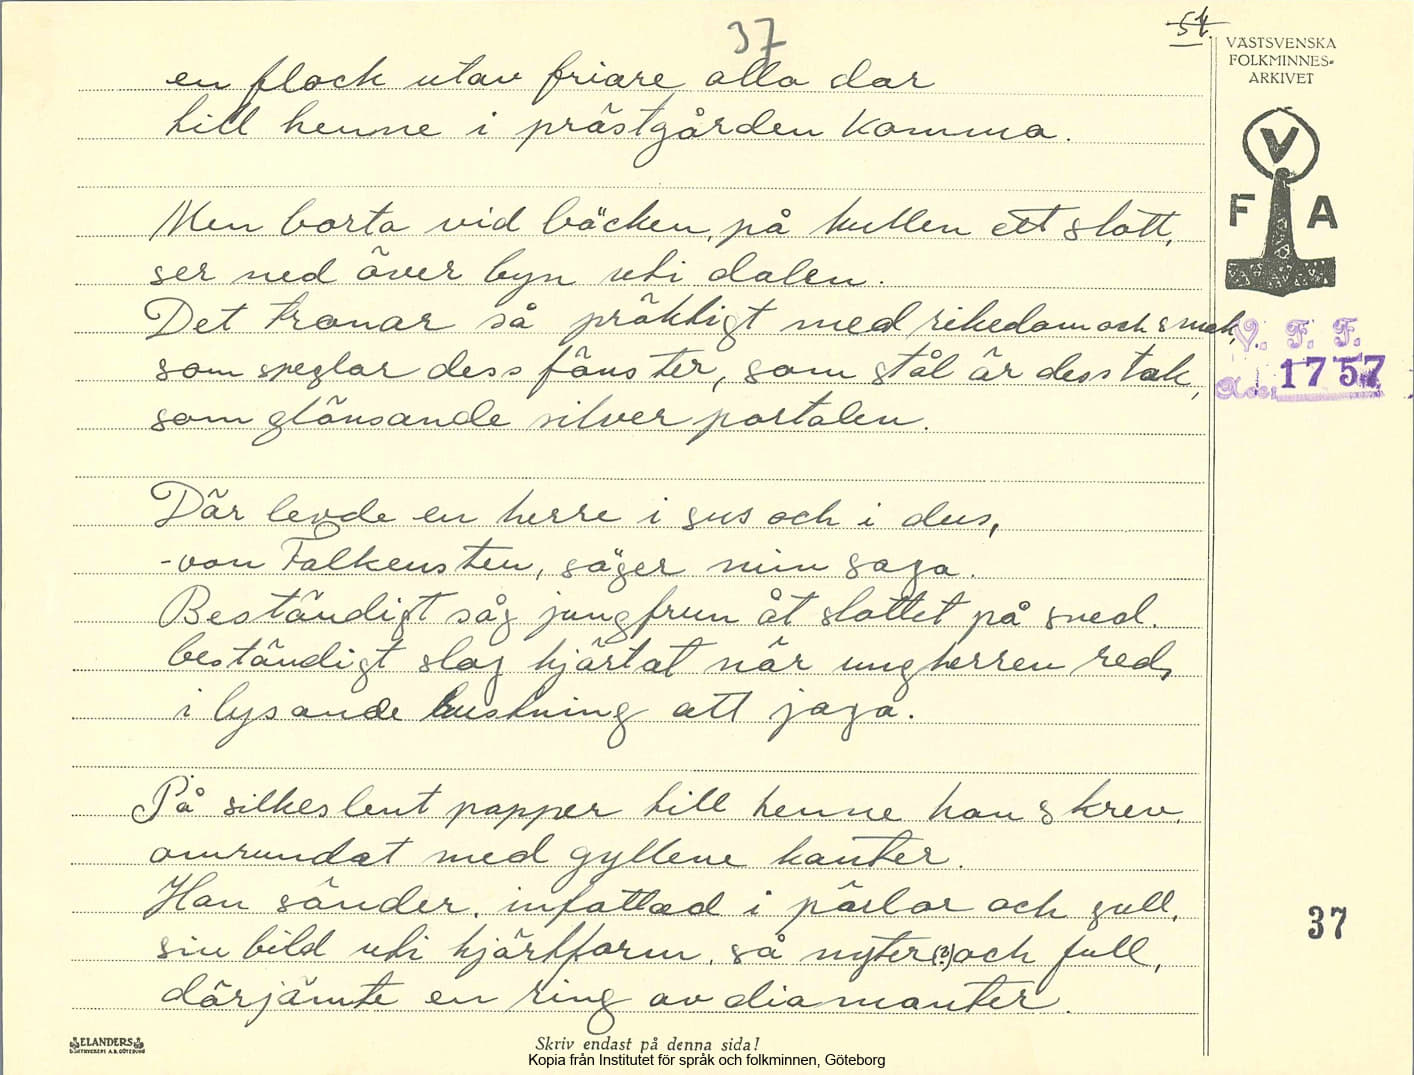 37
54.
VÄSTSVENSKA
FOLKMINNES-
ARKIVET
V
F A
V. F. F.
Acc. 1757
en flock utav friare alla dar
till henne i prästgården komma.
Men borta vid bäcken, på kullen ett slott,
ser ned över byn uti dalen.
Det tronar så präktigt med rikedom och smak,
som speglar dess fönster, som stål är dess tak,
som glänsande silver portalen.
Där levde en herre i sus och i dus,
- von Falkensten, säger min saga.
Beständigt såg jungfrun åt slottet på sned.
beständigt slog hjärtat när ungherren red,
i lysande kustning att jaga.
På silkeslent papper till henne han skrev,
omrundat med gyllene kanter.
Han sänder, infattad i pärlor och gull,
sin bild uti hjärtform, så myter(?) och full,
därjämte en ring av diamanter.
37
ELANDERS
BOKTRYCKERI A.B. GÖTEBORG
Skriv endast på denna sida!
Kopia från Institutet för språk och folkminnen, Göteborg